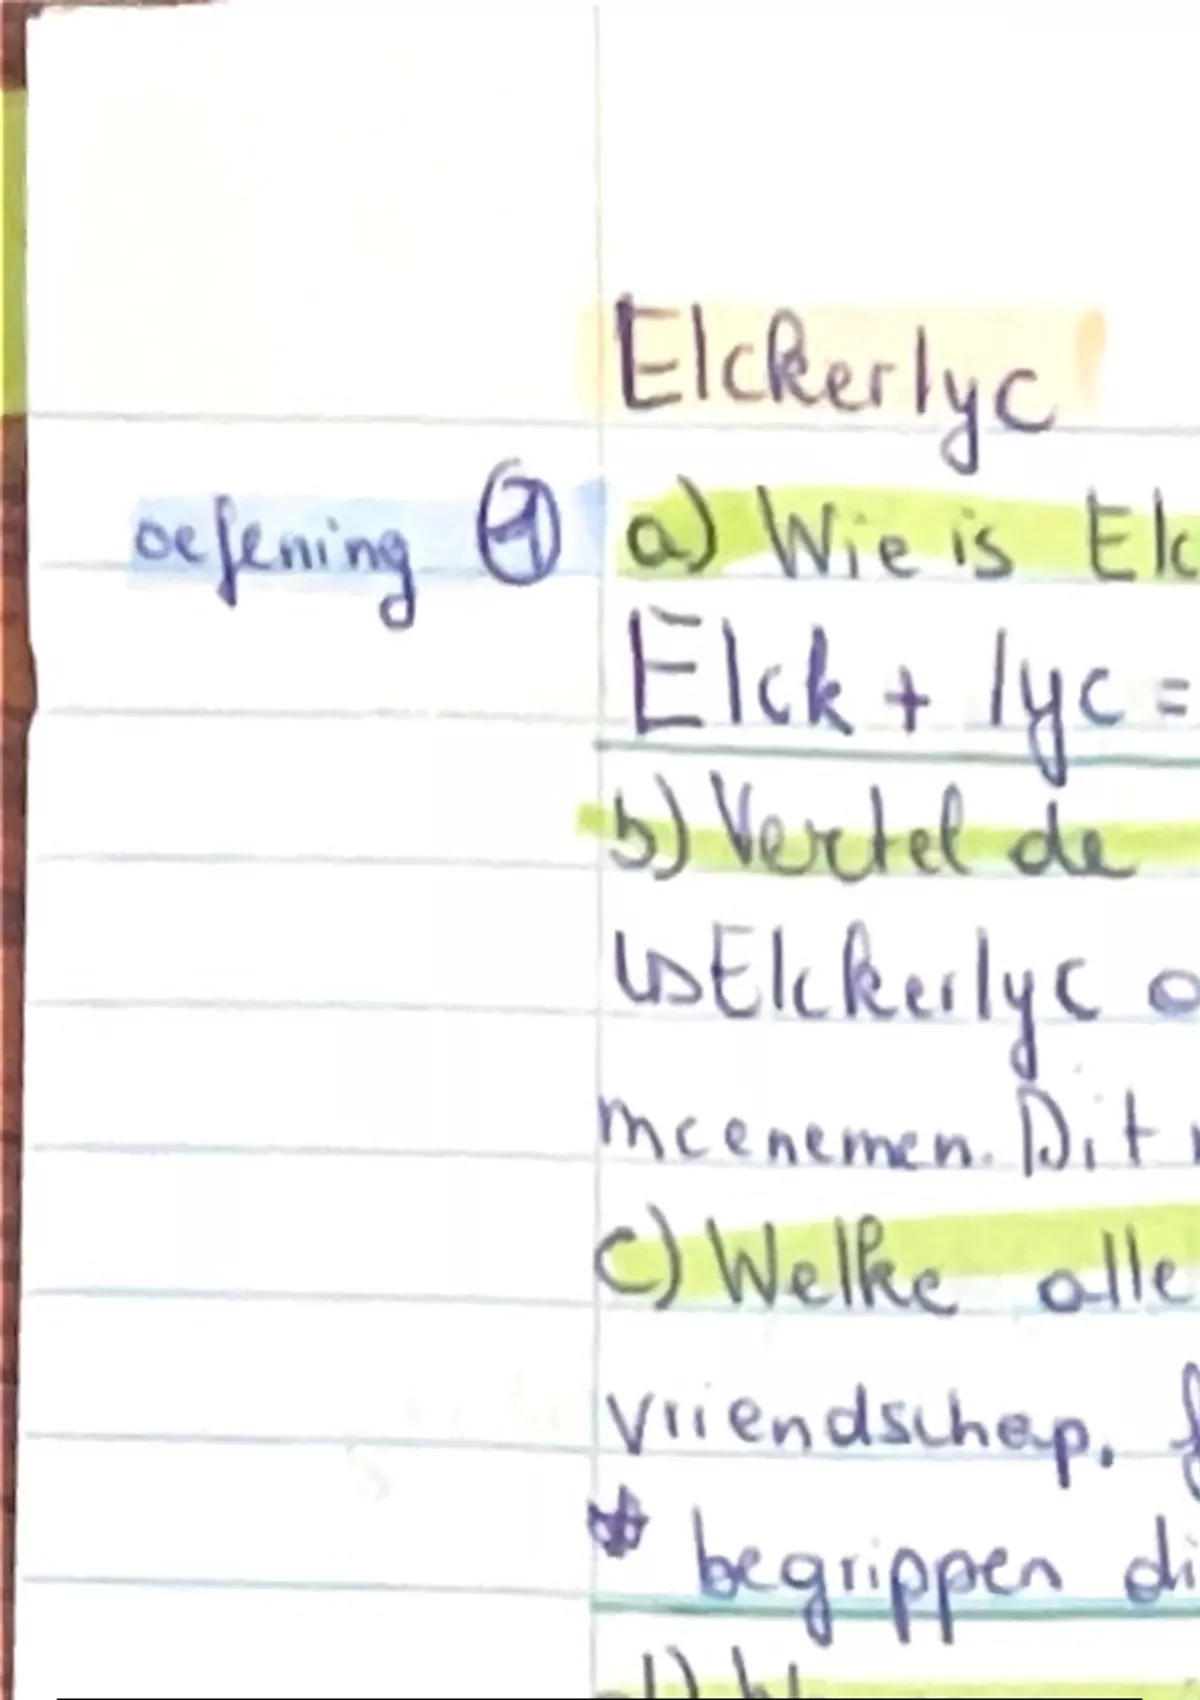 Elckerlyc
oefening ① a) Wie is Elc
Elck + lyc =
b) Vertel de
↳ Elckerlyc o
meenemen. Dit
c) Welke alle
vriendschap,
* begrippen di
d)